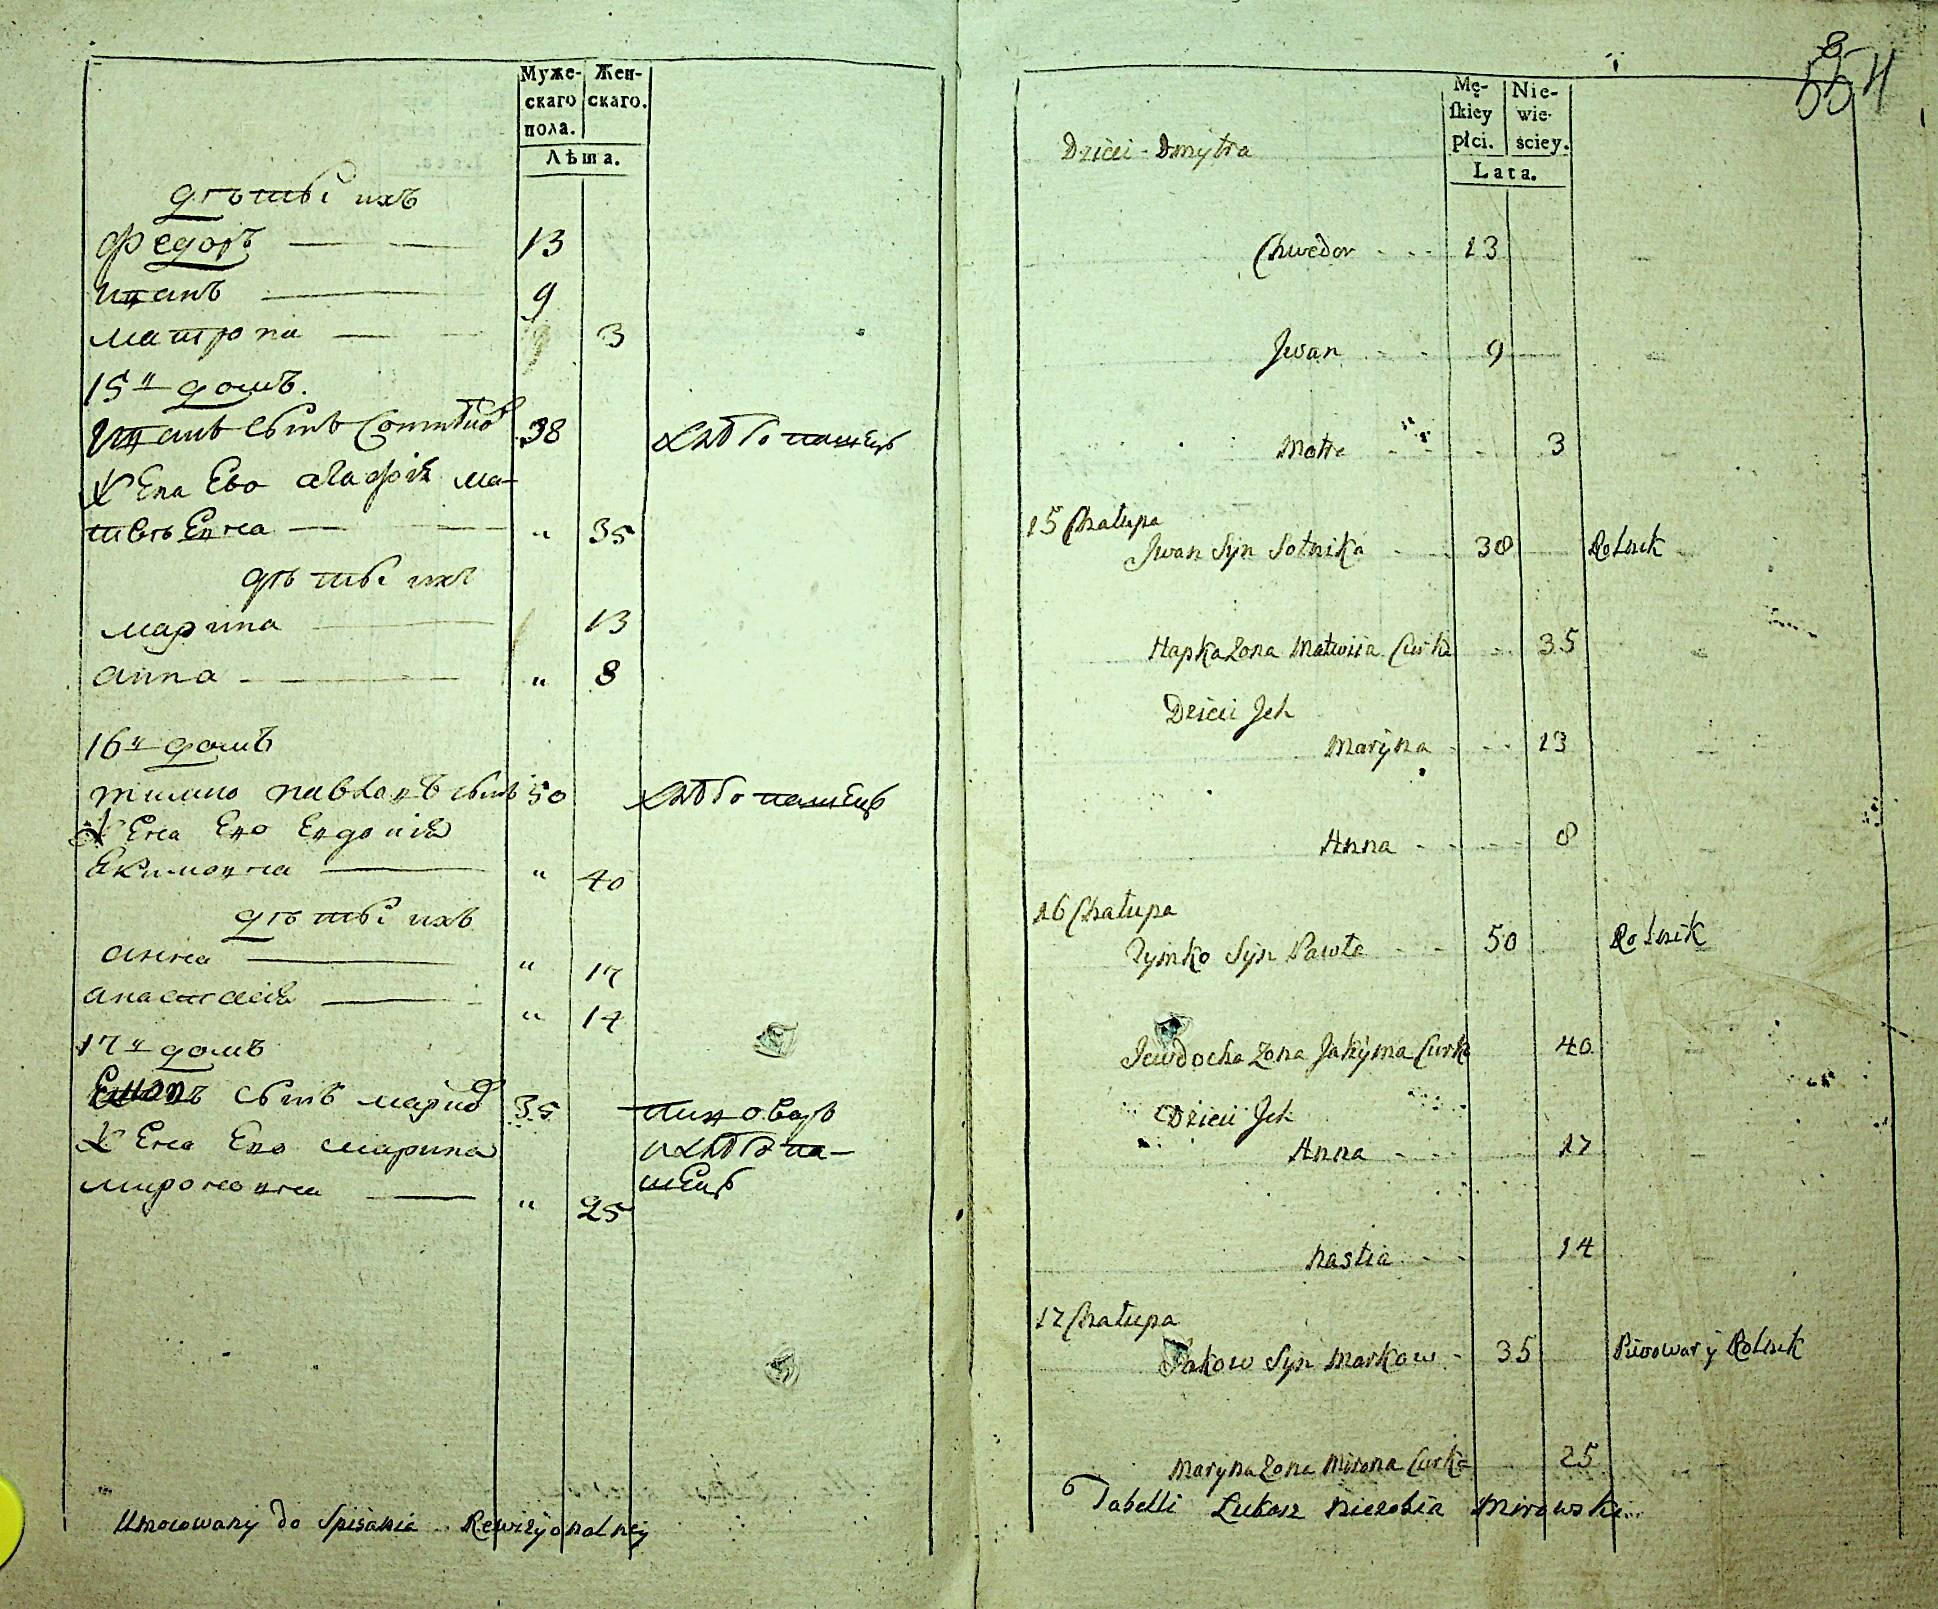 Муже-
скаго
пола.
Жен-
скаго.
Лѣта.
дѣти ихъ
Федоръ 13
Иванъ 9
Матрона 3
15й домъ.
Иванъ сынъ 38 хлѣбопашецъ
жена Ево Агафія Ма-
твѣЕвна " 35
дѣти ихъ
Марина 13
Анна " 8
16й домъ
Тимко Павловъ сынъ 50 хлѣбопашецъ
жена Ево Евдокія
Екимовна " 40
дѣти ихъ
Анна " 17
Анастасія " 14
17й домъ
сынъ 35 пивоваръ
жена Ево Марина и хлѣбопа-
Мироновна " 25 шецъ
Umocowany do Spisania Rewizyonalney
554
Mę-
skiey
płci.
Nie-
wie-
ściey.
Lata.
Dzieci Dmytra
Chwedor 13
Jwan 9
Motre 3
15 Chałupa
Jwan Syn Sotnika 38 Rolnik
Hapka Zona Matwiia Curka 35
Dzieci Jch
Maryna 13
Anna 8
16 Chałupa
Tymko Syn Pawła 50 Rolnik
Jewdocha Zona Jakyma Curka 40
Dzieci Jch
Anna 17
Nastia 14
17 Chałupa
Jakow Syn Markow 35 Piwowar y Rolnik
Maryna Zona Mirona Curka 25
Tabelli Łukasz Mirowski